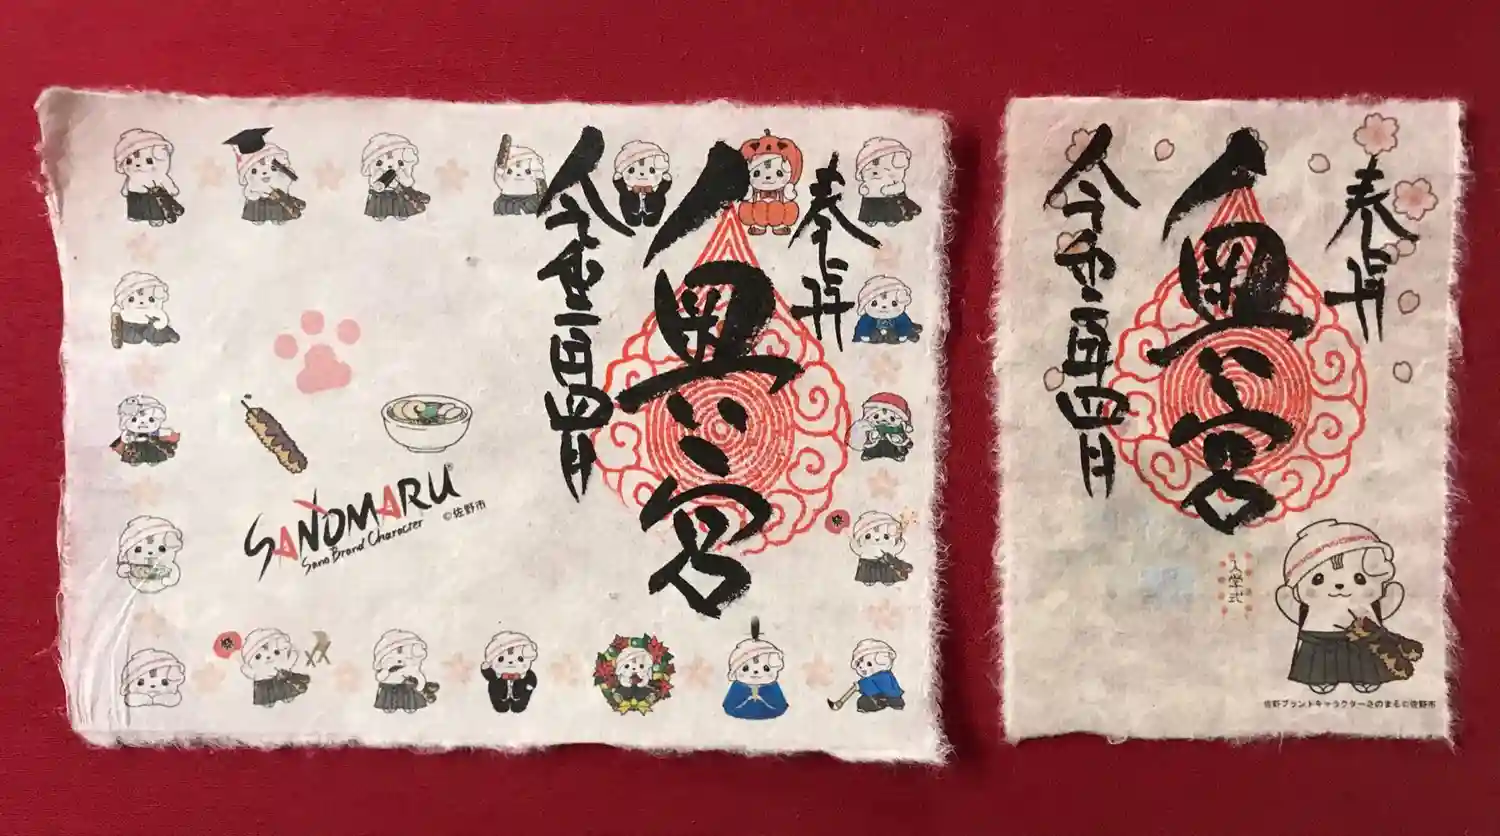 奉拝
奥宮
令和二年四月
SANOMARU
Sano Brand Character
©佐野市
奉拝
奥宮
令和二年四月
入学式
佐野ブランドキャラクターさのまる©佐野市